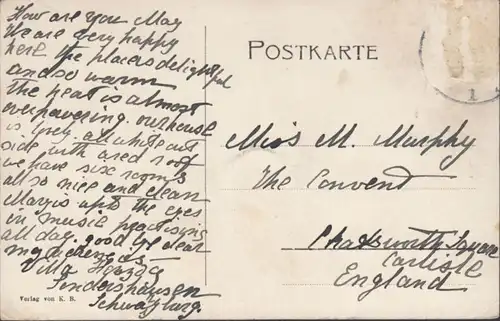 How are you May
We are very happy
here the place is delightful
and so warm
the heat is almost
overpowering. our house
is lovely. all white out
side with a red roof
we have six rooms
all so nice and clean
is up to the eyes
in music practising
all day. good bye dear
Villa
Sondershausen
Schwarzburg.
Verlag von K. B.
POSTKARTE
1
Miss M. Murphy
The Convent
Chatsworth Square
Carlisle
England